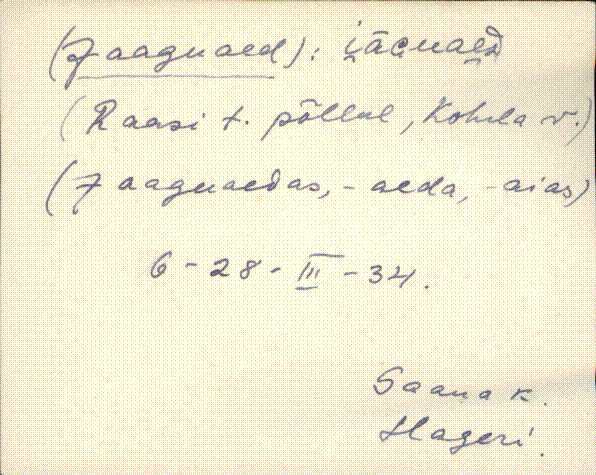 (Jaaguaed): i̮āGuaeᴅ
(Raasi t. põllul, Kohila v.)
(Jaaguaedas, -aeda, -aias)
6-28-III-34.
Saana k.
Hageri.